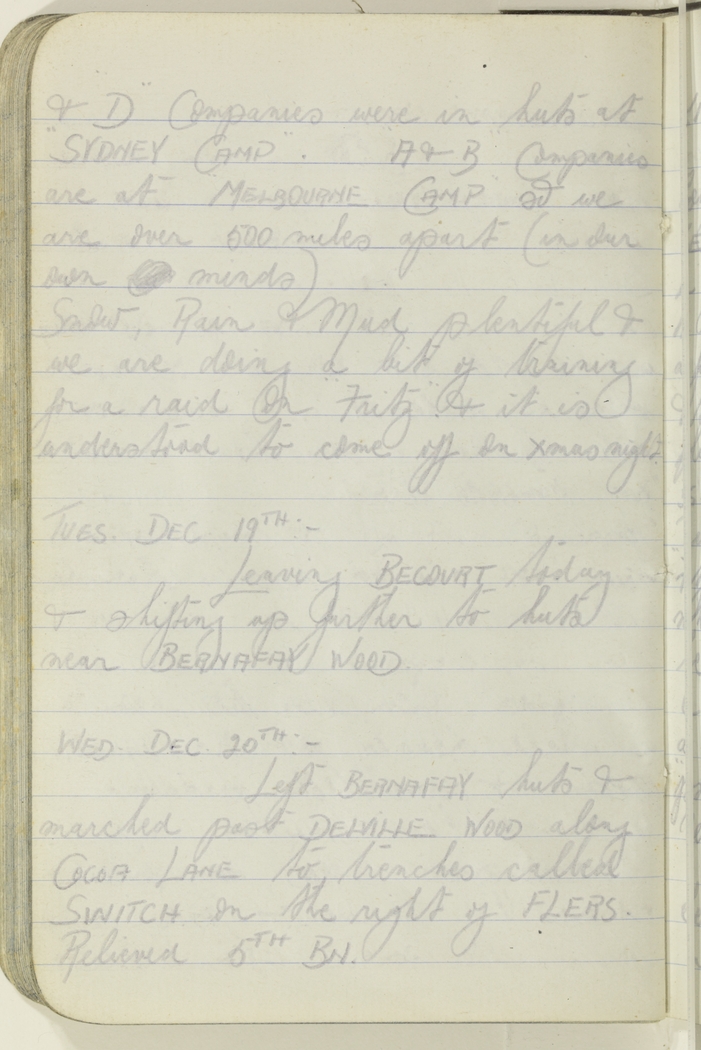 & D" Companies were in huts at
"SYDNEY CAMP". A & B Companies
are at MELBOURNE CAMP so we
are over 500 miles apart (in our
own minds)
Snow, Rain & Mud plentiful &
we are doing a bit of training
for a raid on "Fritz" & it is
understood to come off on Xmas night.
TUES. DEC 19TH:-
Leaving BECOURT today
& shifting up further to huts
near BERNAFAY WOOD.
WED. DEC. 20TH:-
Left BERNAFAY huts &
marched past DELVILLE WOOD along
COCOA LANE to trenches called
SWITCH on the right of FLERS.
Relieved 5TH BN.